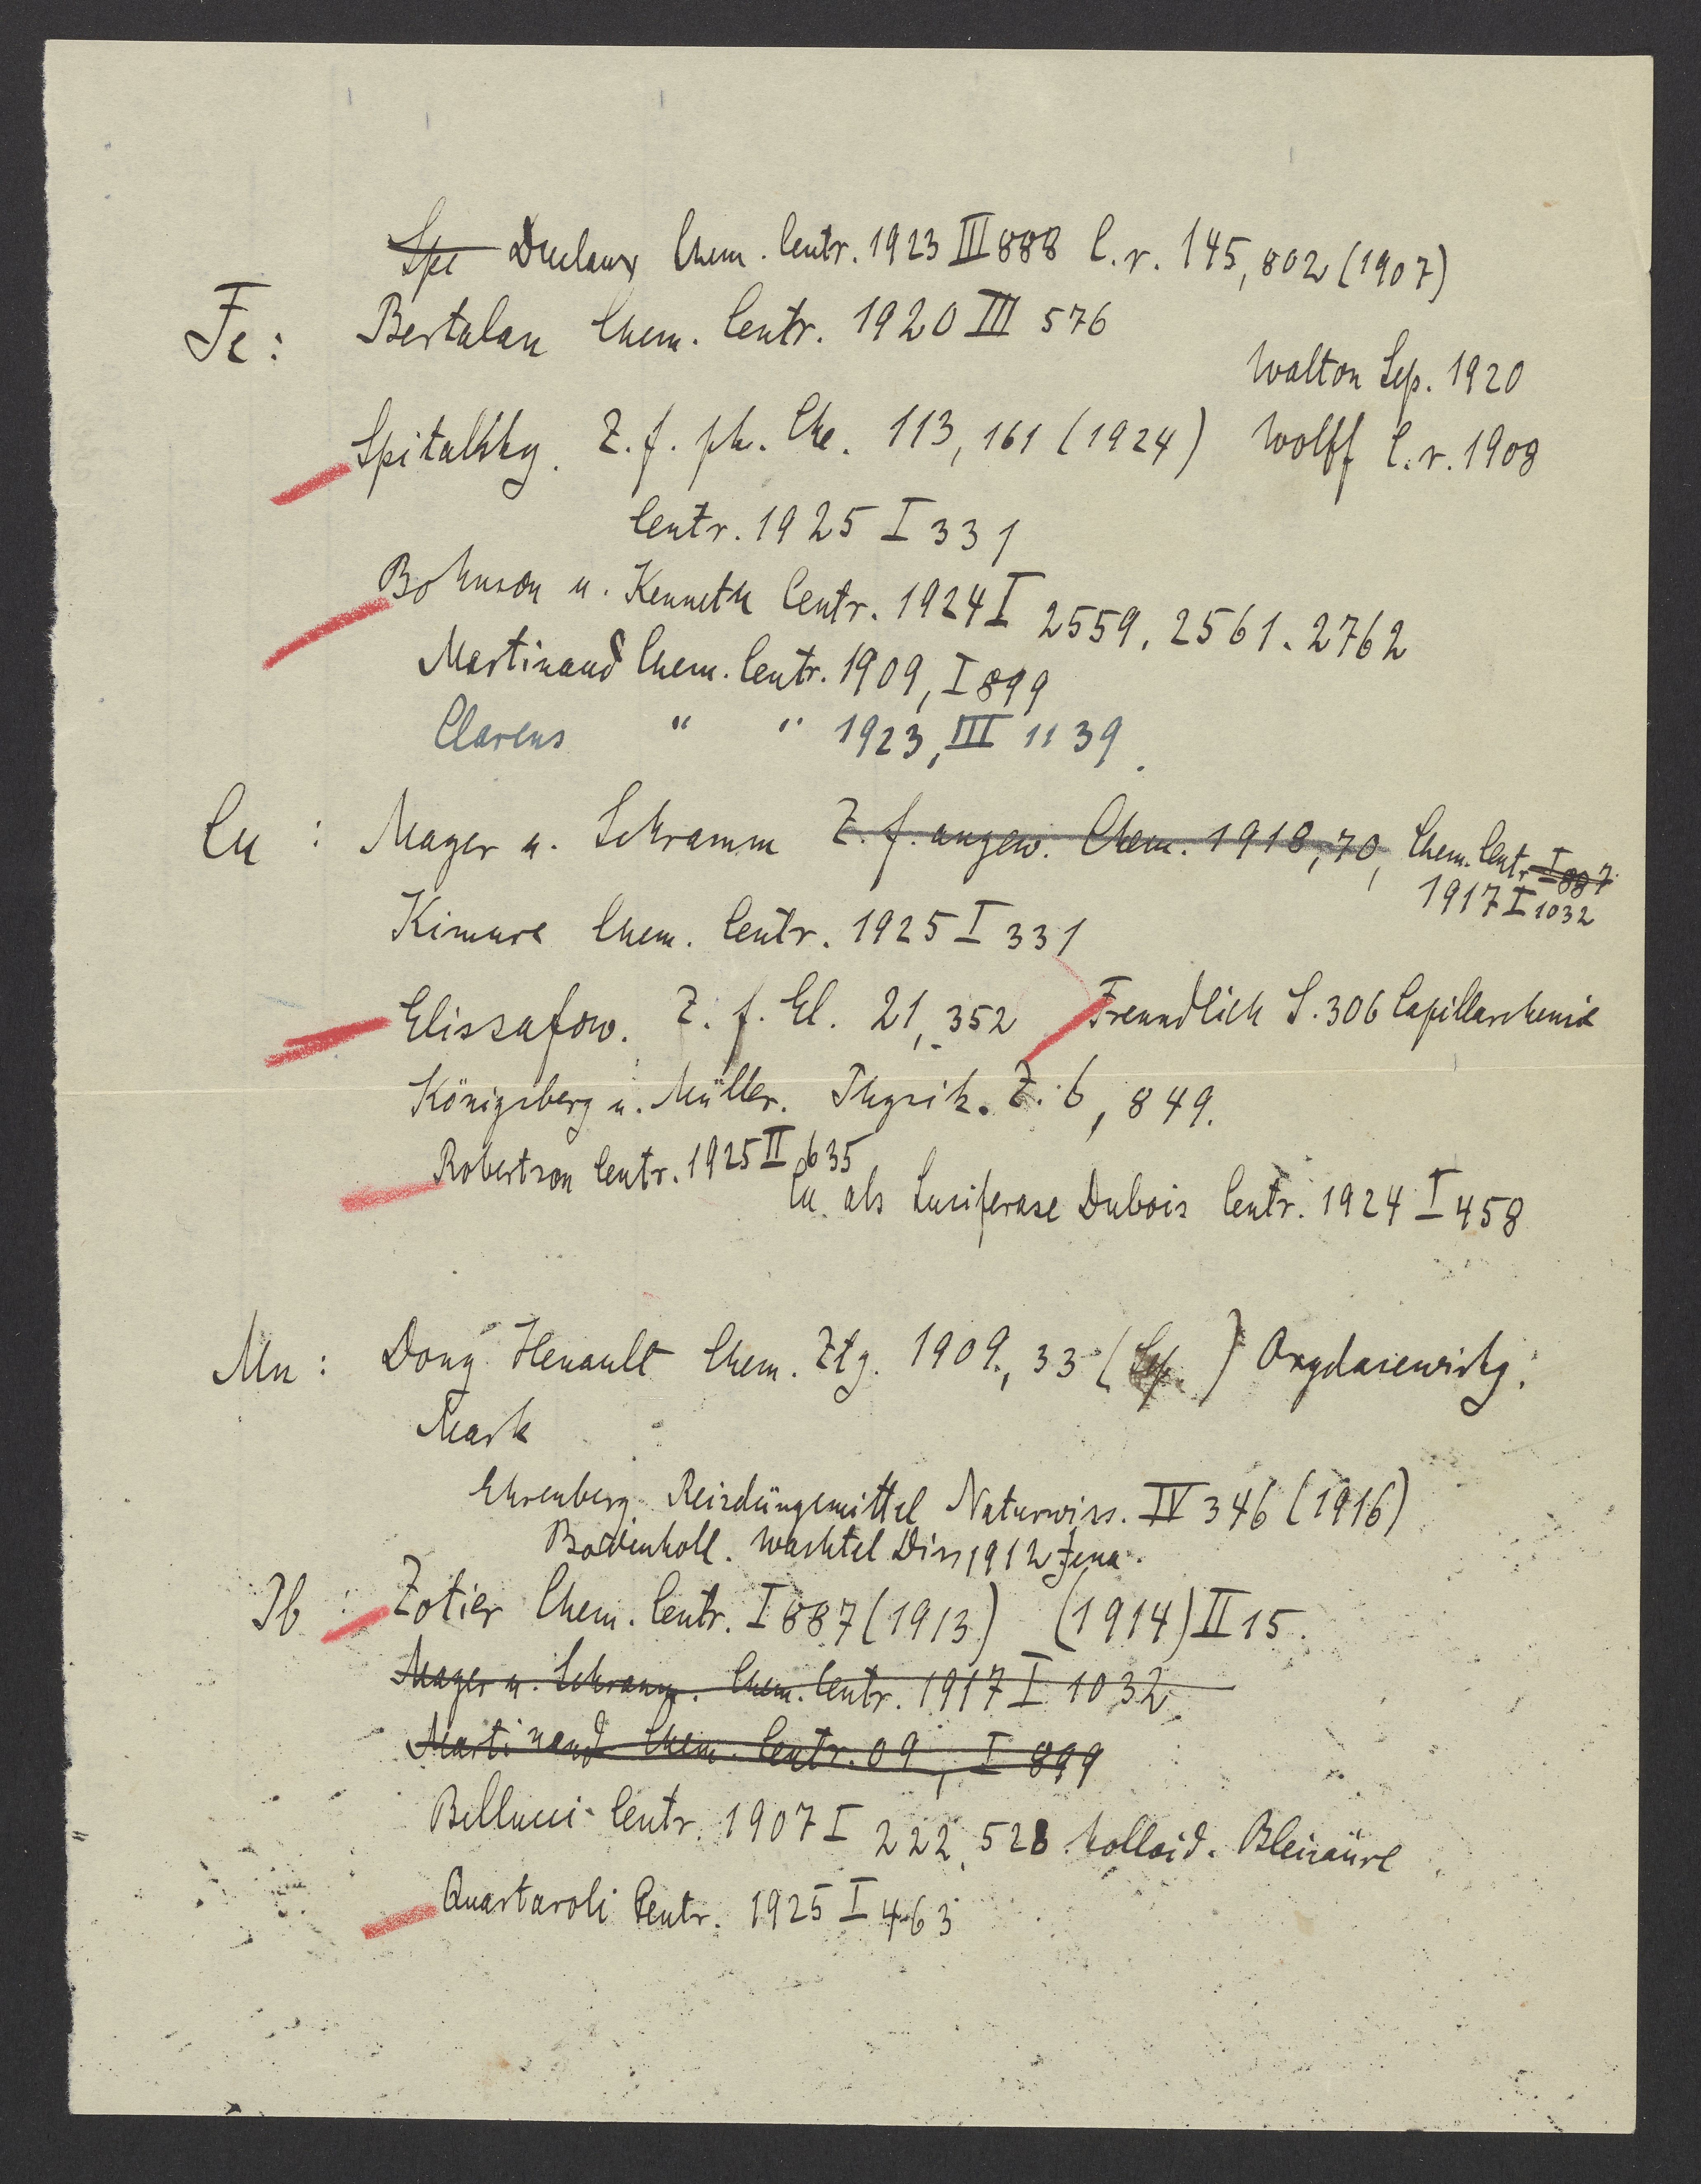 Spe Duclaux Chem. Centr. 1923 III 888 C. r. 145, 802 (1907)
Fe: Bertalan Chem. Centr. 1920 III 576
Walton Sep. 1920
Spitalsky. Z. f. ph. Che. 113, 161 (1924) Wolff C. r. 1908
Centr. 1925 I 331
Bohnson u. Kenneth Centr. 1924 I 2559, 2561. 2762
Martinand Chem. Centr. 1909, I 899
Clarens " " 1923, III 1139.
Cu : Mager u. Schramm Z. f. angew. Chem. 1918, 70, Chem. Centr. I 887
1917 I 1032
Kimura Chem. Centr. 1925 I 331
Elissafow. Z. f. El. 21, 352 Freundlich S. 306 Capillarchemie
Königsberg u. Müller. Physik. Z. 6, 849.
Robertson Centr. 1925 II 635
Cu als Luciferase Dubois Centr. 1924 I 458
Mn : Dony Henault Chem. Ztg. 1909, 33 ( ) Oxydasewirkg.
Mark
Ehrenberg Reizdüngemittel Naturwiss. IV 346 (1916)
Bodenkoll. Wachtel Diss 1912 Jena.
Pb : Zotier Chem. Centr. I 887 (1913) (1914) II 15.
Mager u. Schramm. Chem. Centr. 1917 I 1032
Martinand Chem. Centr. 09, I 899
Bellucci Centr. 1907 I 222, 528 kolloid. Bleisäure
Quartaroli Centr. 1925 I 463